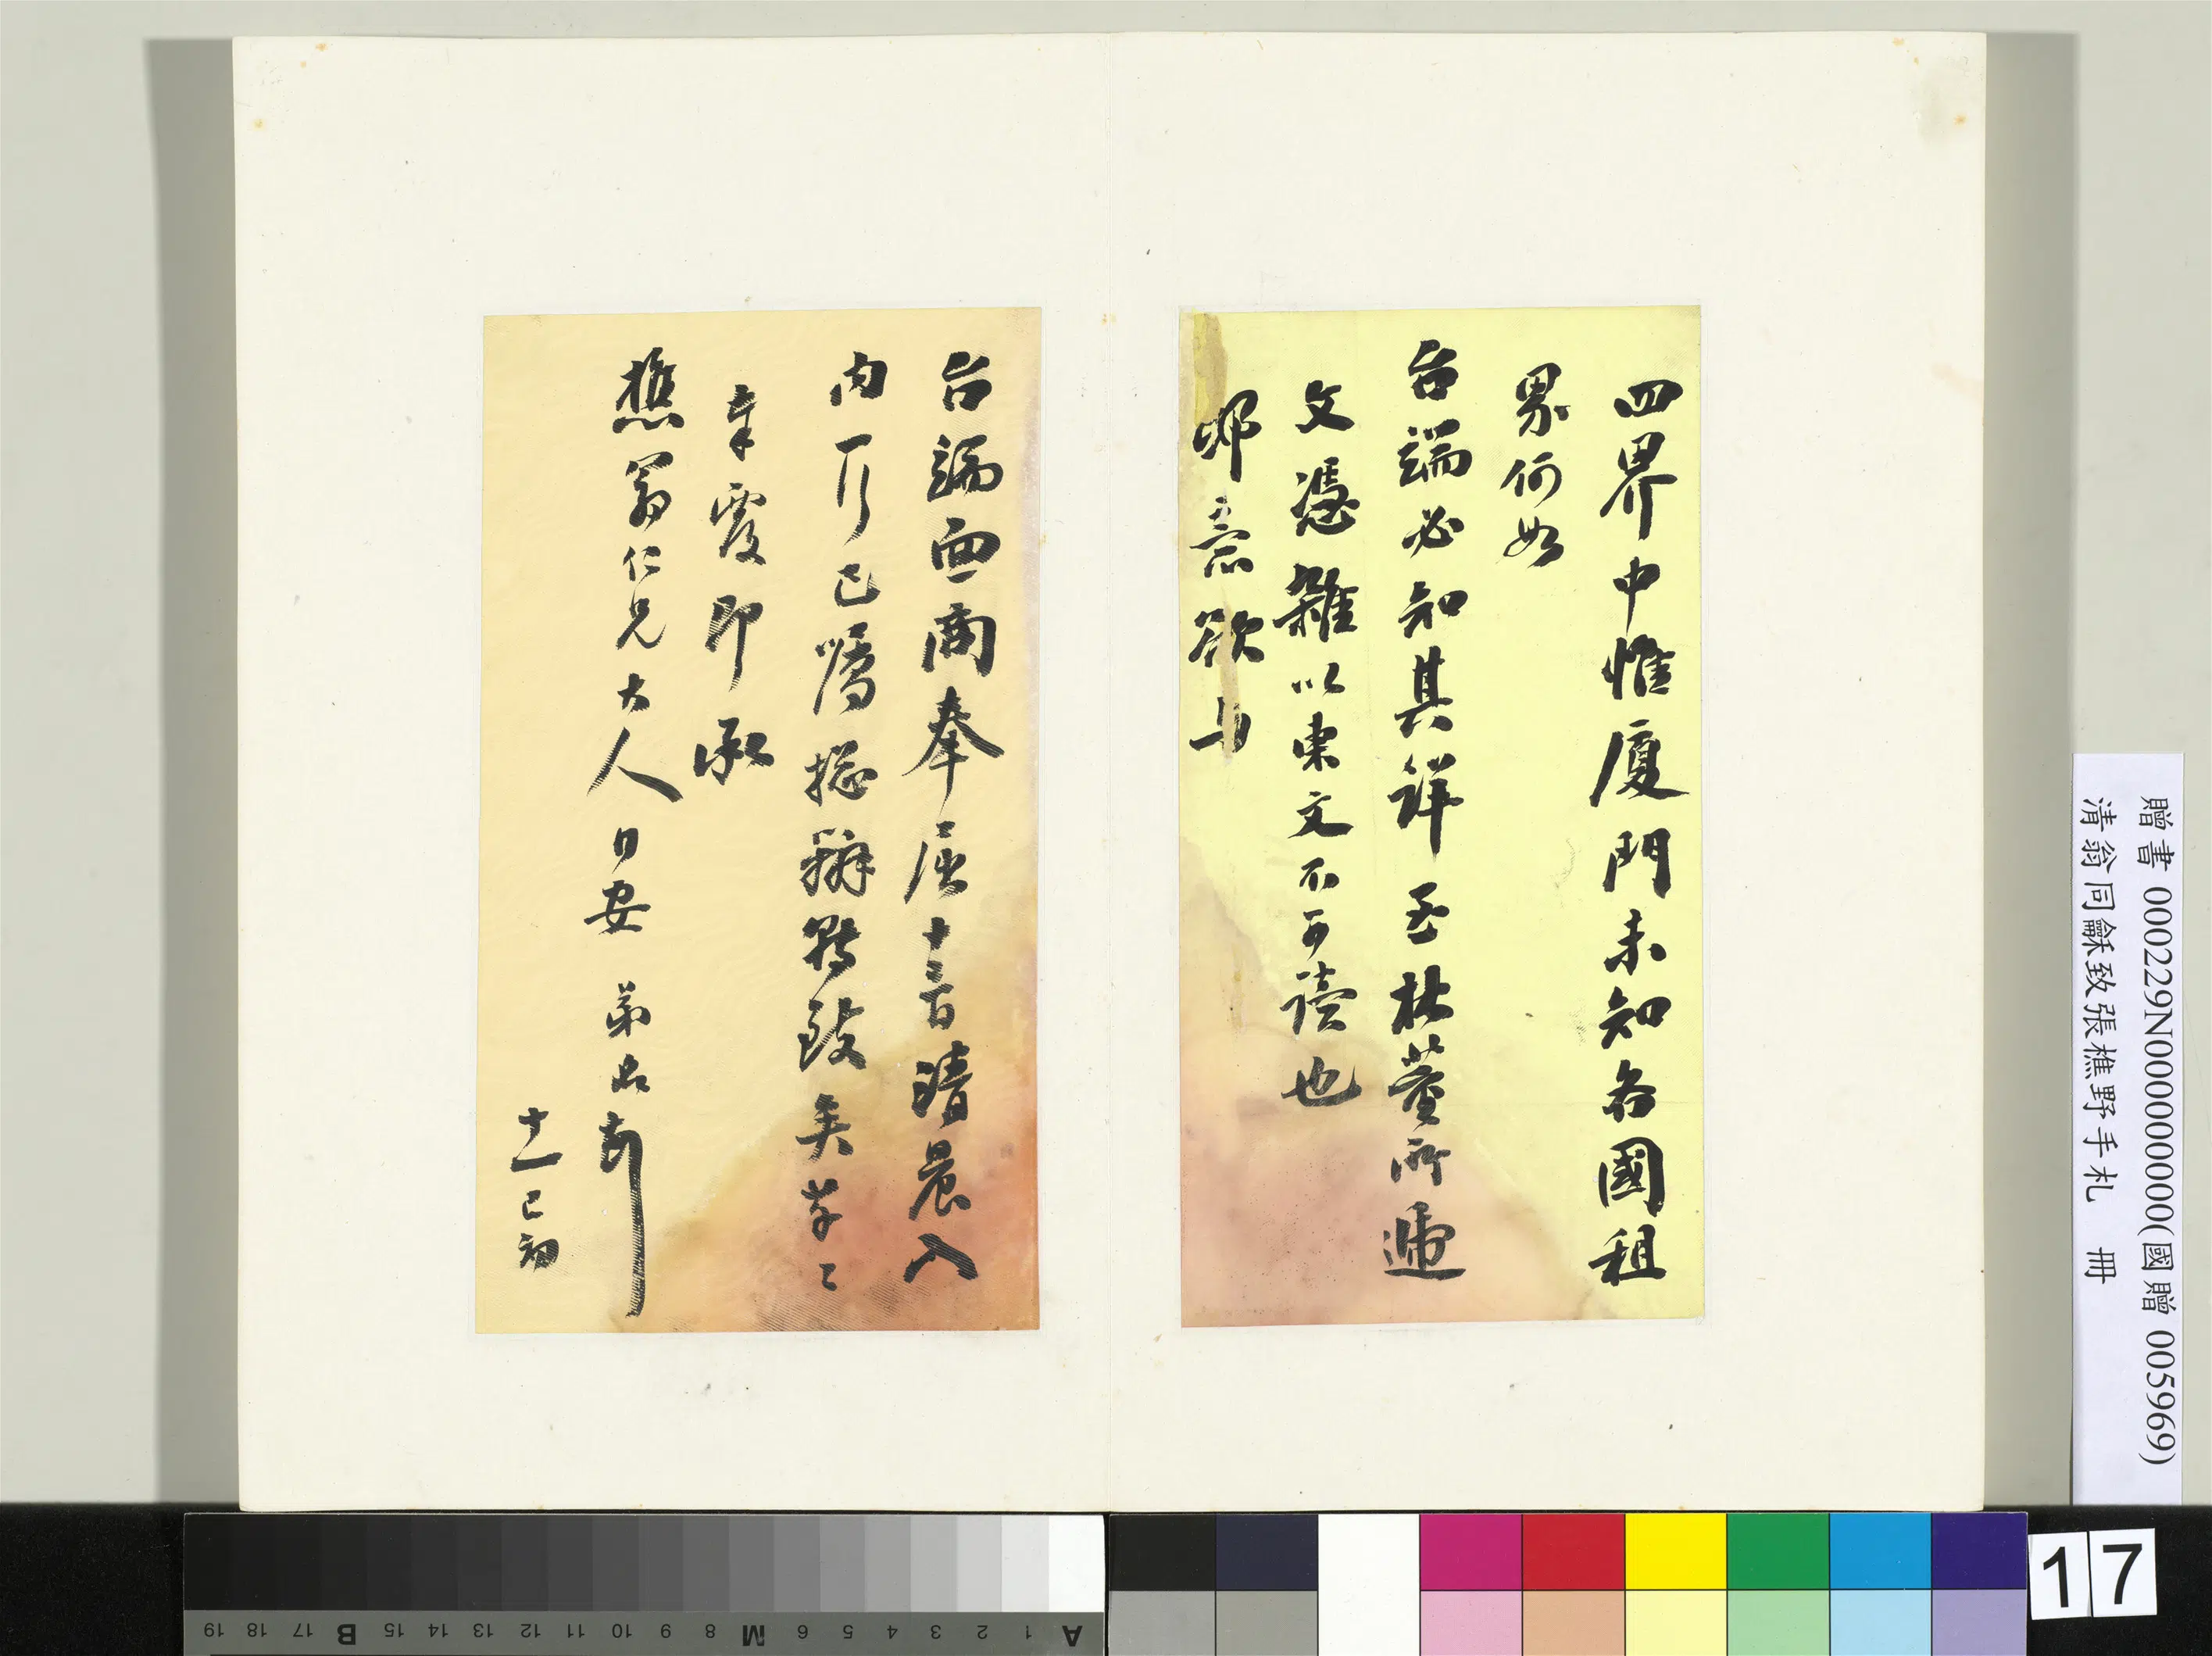 四界中惟廈門未知各國租
界何如
台端必知其詳至林董所遞
文憑雜以東文不可讀也
鄙意欲与
台端面商奉屈十二日清晨入
內一行已屬総辦轉致矣草々
幸覆即承
樵翁仁兄大人 日安 弟名頓
十一巳初
贈書 000229N000000000(國贈 005969)
清翁同龢致張樵野手札 冊
17
A 1 2 3 4 5 6 M 8 9 10 11 12 13 14 15 B 17 18 19